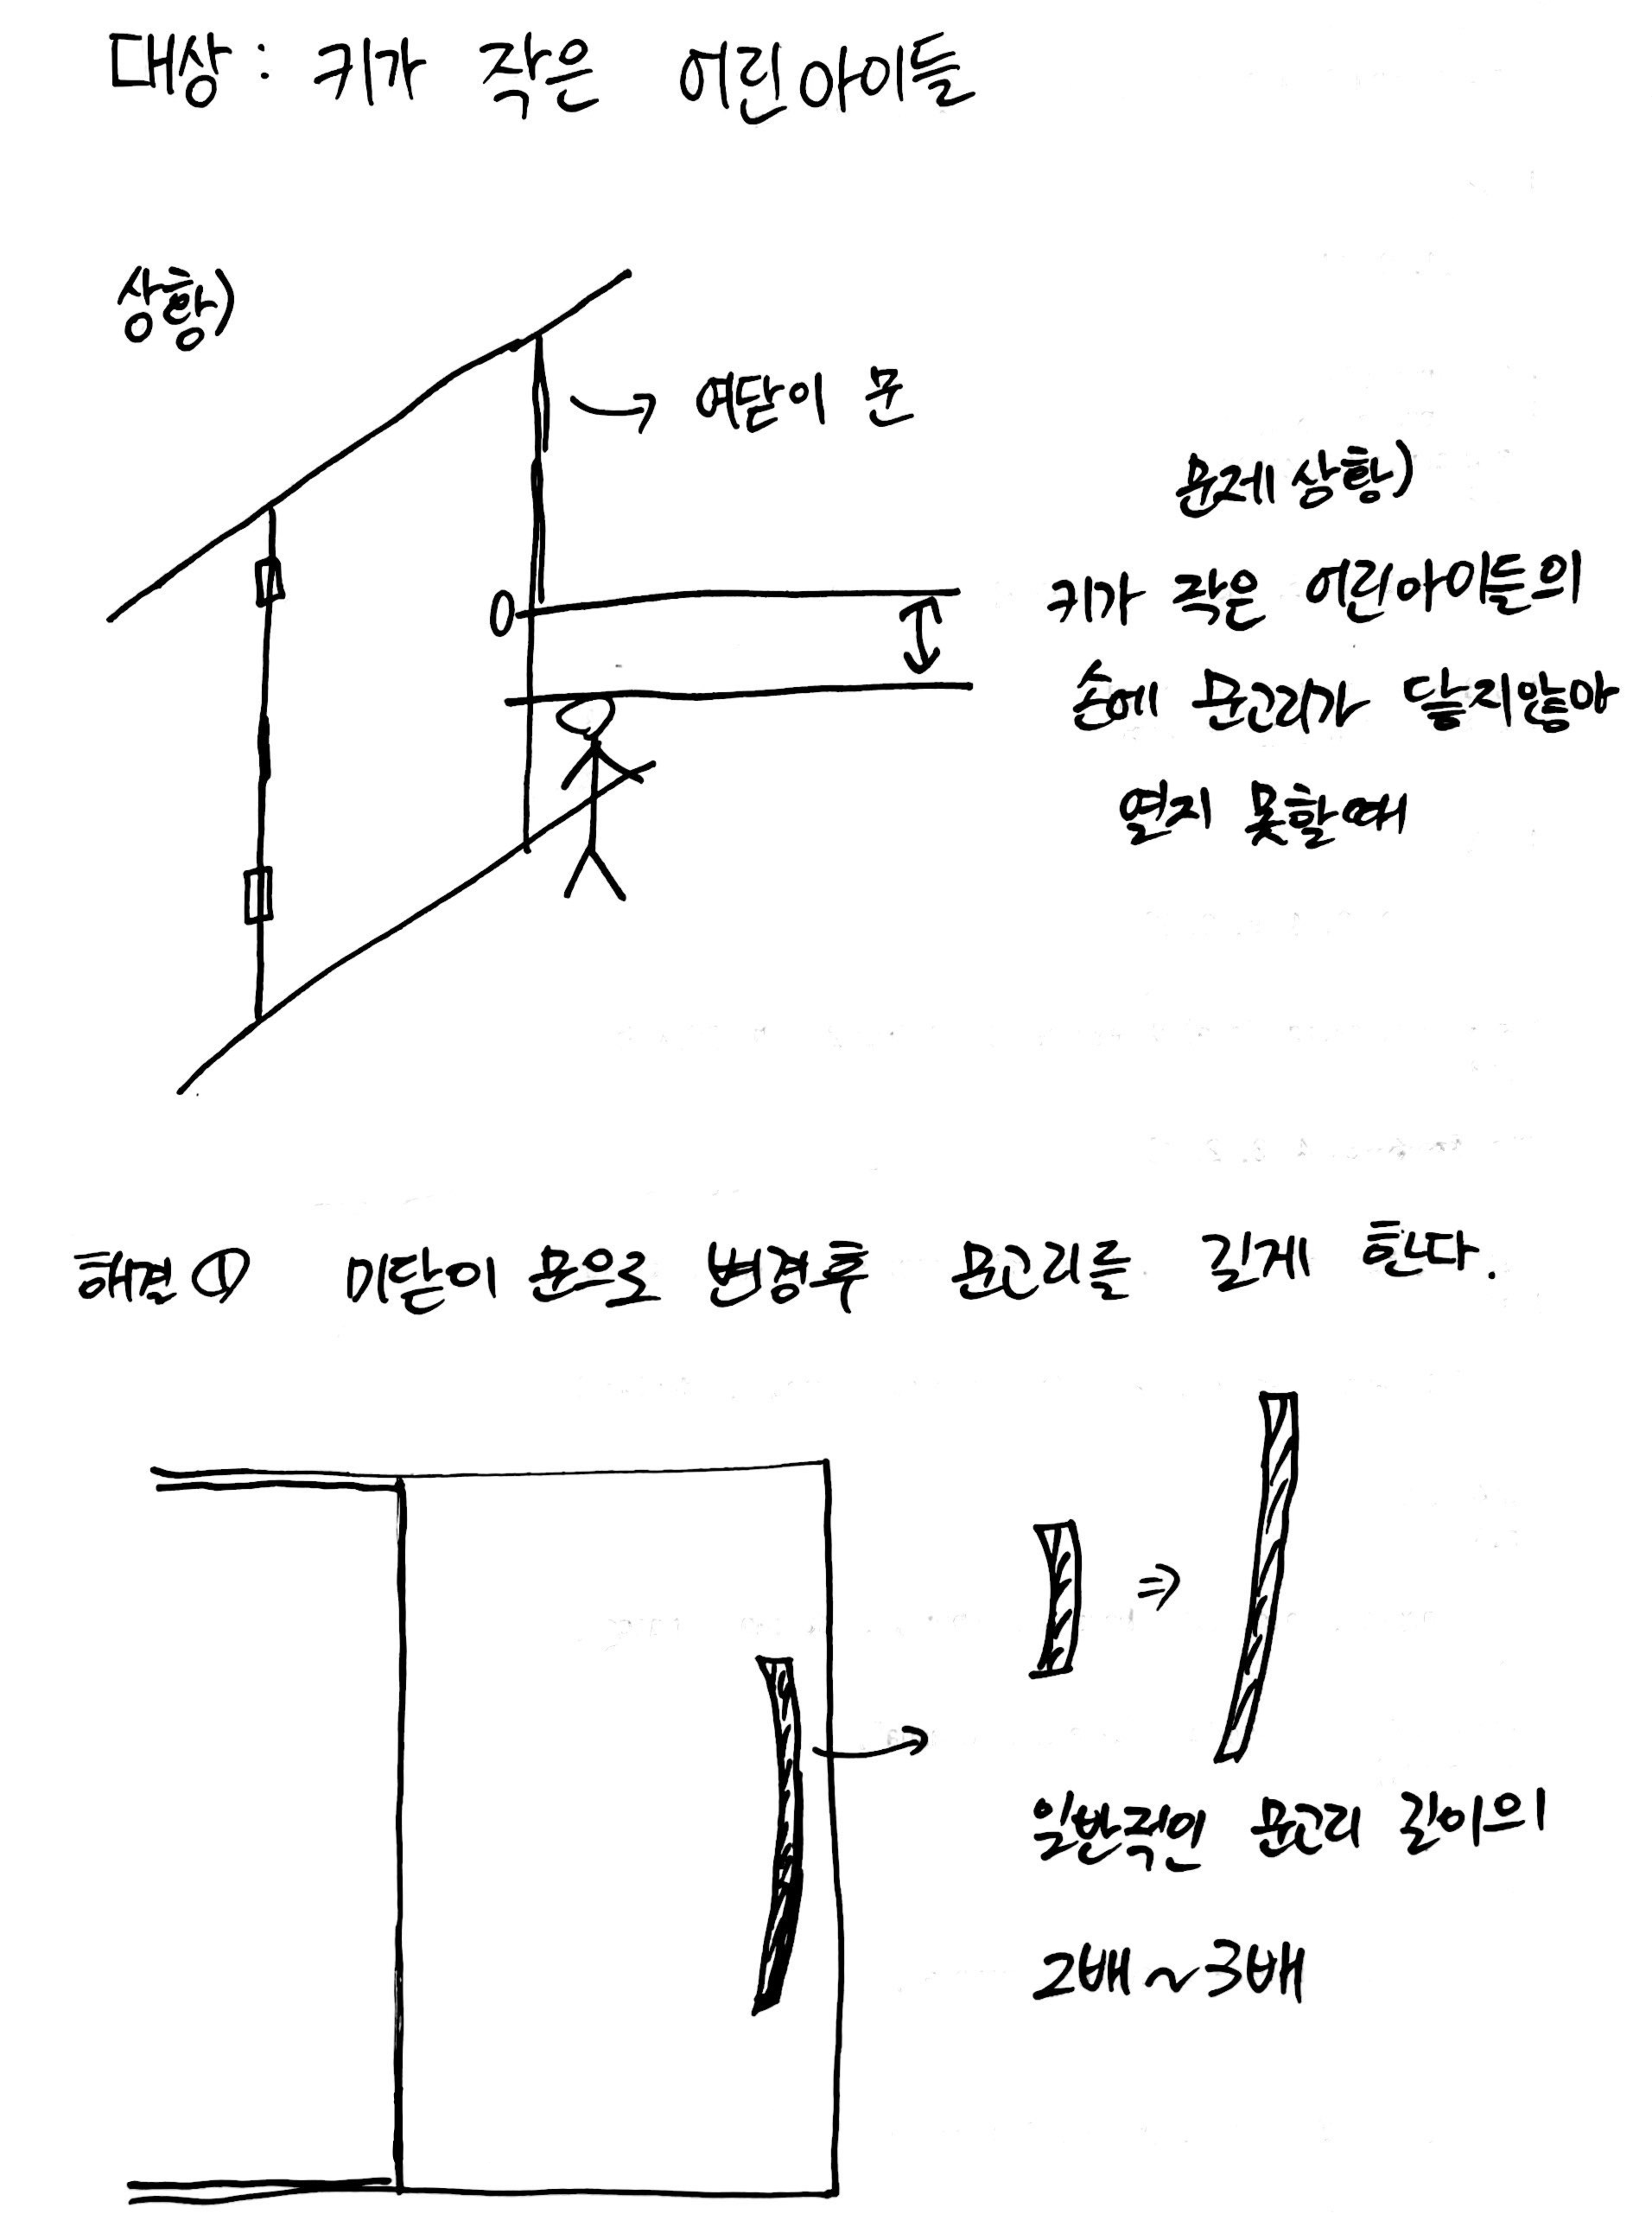 대상 : 키가 작은 어린아이들
상황)
→ 여닫이 문
문제상황)
키가 작은 어린아이들의
손에 문고리가 닿지않아
열지 못할때
해결① 미닫이 문으로 변경후 문고리를 길게 한다.
⇒
일반적인 문고리 길이의
2배~3배